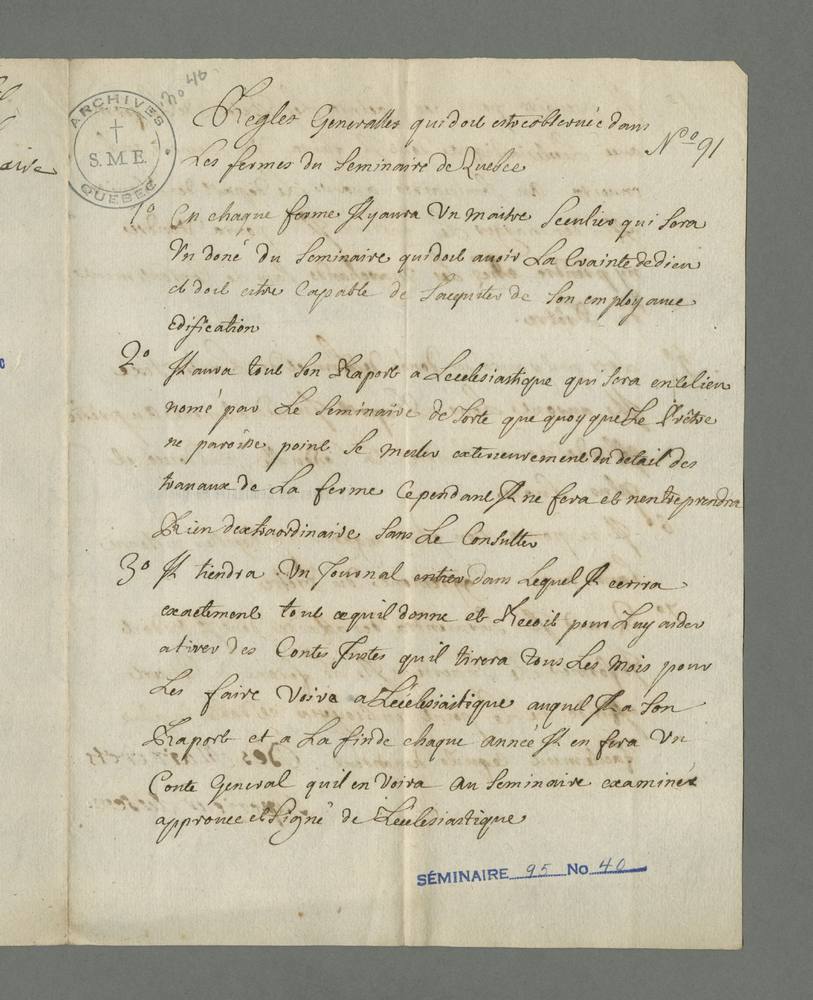 no 46
ARCHIVES
S.M.E.
QUEBEC
Regles Generalles qui doit estre observée dans
No 91
Les fermes du Seminaire de Quebec
1o En chaque ferme Il y aura Un maitre Seculier qui sera
Un doné du Seminaire qui doit avoir La Crainte de dieu
et doit estre Capable de Sacquiter de Son employ avec
edification
2o Il aura tout Son Raport a Lecclesiastique qui Sera en le lieu
nomé par Le Seminaire de Sorte que quoy que Le Prêtre
ne paroisse point Se mesler exterieurement du detail des
travaux de La ferme Cependant Il ne fera et nentreprendra
Rien dextraordinaire Sans Le Consulter
3o Il tiendra Un Journal entier dans Lequel Il ecrira
exactement tout ce quil donne et Recoit pour Luy aider
a tirer des Contes Justes quil tirera tous Les mois pour
Les faire Voire a Lecclesiastique auquel Il a Son
Raport et a La fin de chaque année Il en fera Un
Conte General quil en Voira au Seminaire examinée
approuée et Signé de Lecclesiastique
SÉMINAIRE 95 No 40